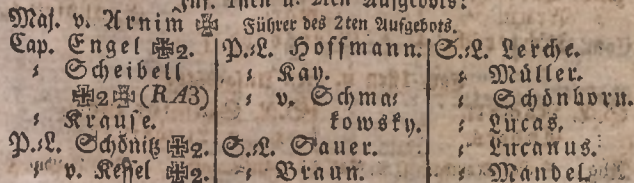 Inf. 1sten u. 2ten Aufgebots:
Maj. v. Arnim ✠ Führer des 2ten Aufgebots.
Cap. Engel ✠2.
⸗ Scheibell
✠2✠(RA3)
⸗ Krause.
P.⸗L. Schönitz ✠2.
⸗ v. Kessel ✠2.
P.⸗L. Hoffmann.
⸗ Kay.
⸗ v. Schma⸗
kowsky.
S.⸗L. Sauer.
⸗ Braun.
S.⸗L. Lerche.
⸗ Müller.
⸗ Schönborn.
⸗ Lucas.
⸗ Lucanus.
⸗ Mandel.